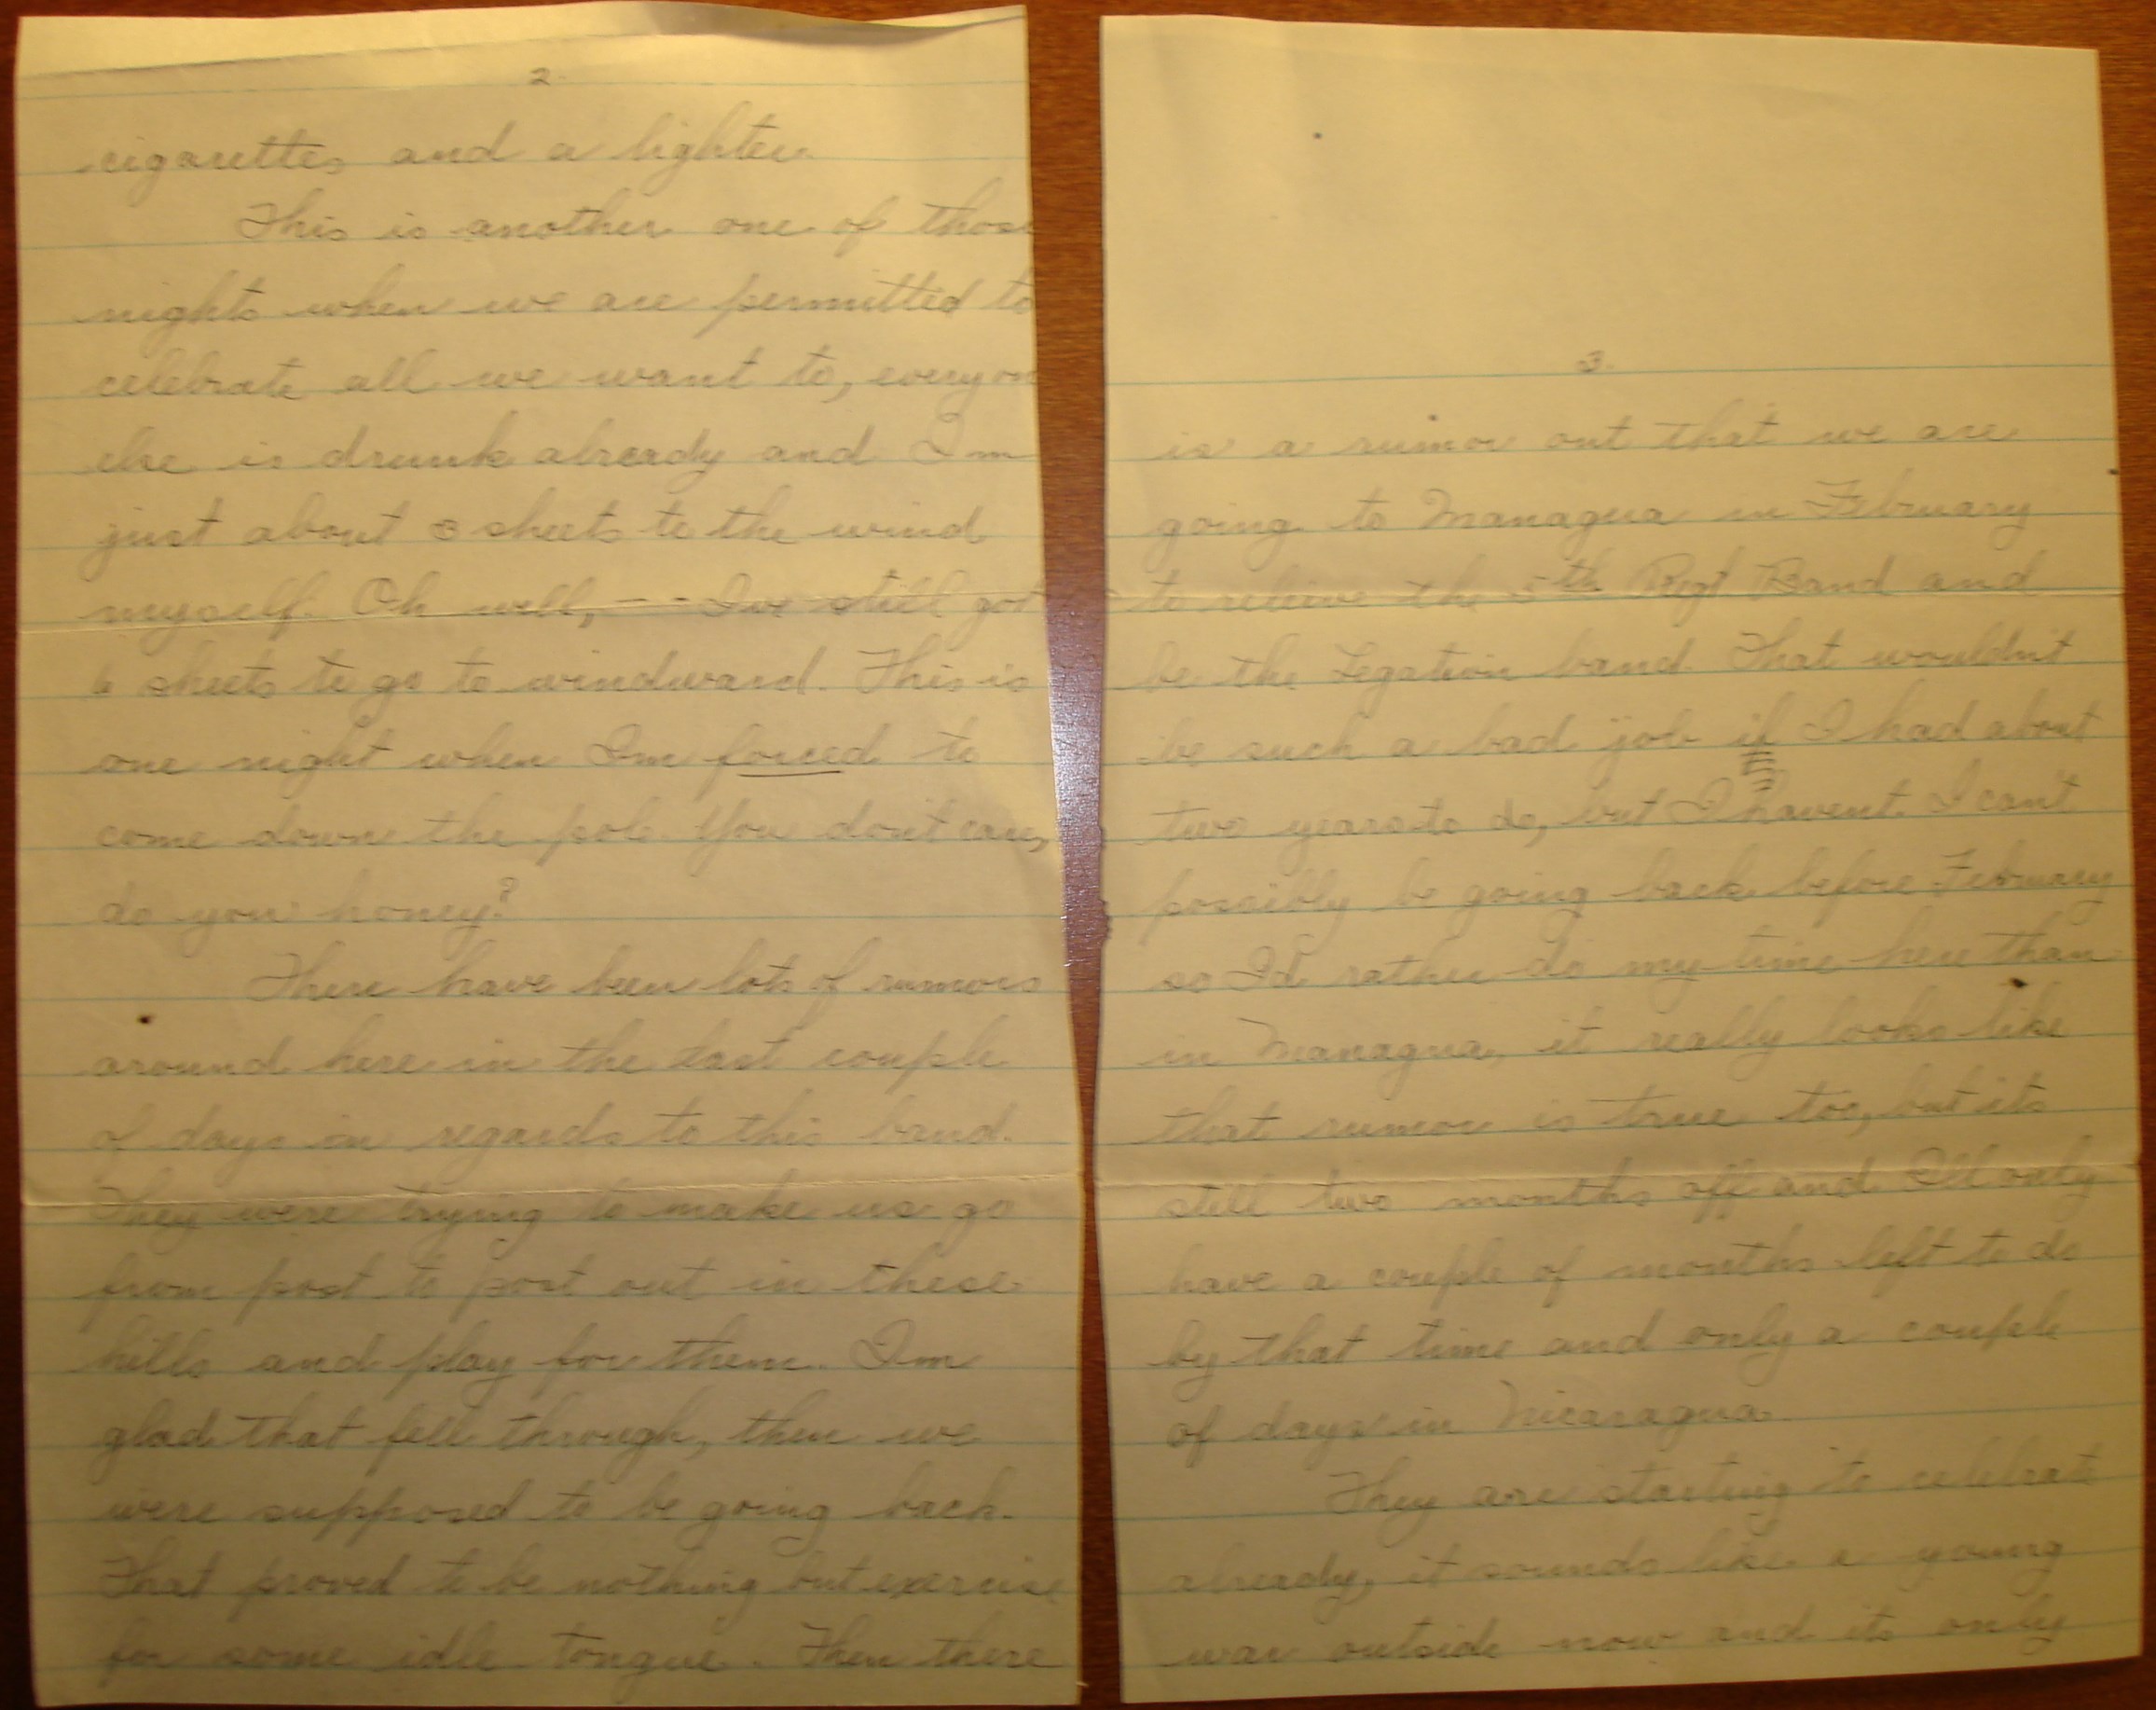 2.
cigarettes and a lighter.
This is another one of those
nights when we are permitted to
celebrate all we want to, everyon
else is drunk already and I'm
just about 3 sheets to the wind
myself. Oh well, -- I've still got
6 sheets to go to windward. This is
one night when I'm forced to
come down the pole. You don't care,
do you honey?
There have been lots of rumors
around here in the last couple
of days in regards to this band.
They were trying to make us go
from post to post out in these
hills and play for them. I'm
glad that fell through, then we
were supposed to be going back.
That proved to be nothing but exercise
for some idle tongue. Then there
3.
is a rumor out that we are
going to Managua in February
to releive the 5th Regt Band and
be the Legation band. That wouldn't
be such a bad job if I had about
two years to do, but I havent. I can't
possibly be going back before February
so I'd rather do my time here than
in Managua, it really looks like
that rumor is true too, but its
still two months off and I'll only
have a couple of months left to do
by that time and only a couple
of days in Nicaragua.
They are starting to celebrate
already, it sounds like a young
war outside now and its only